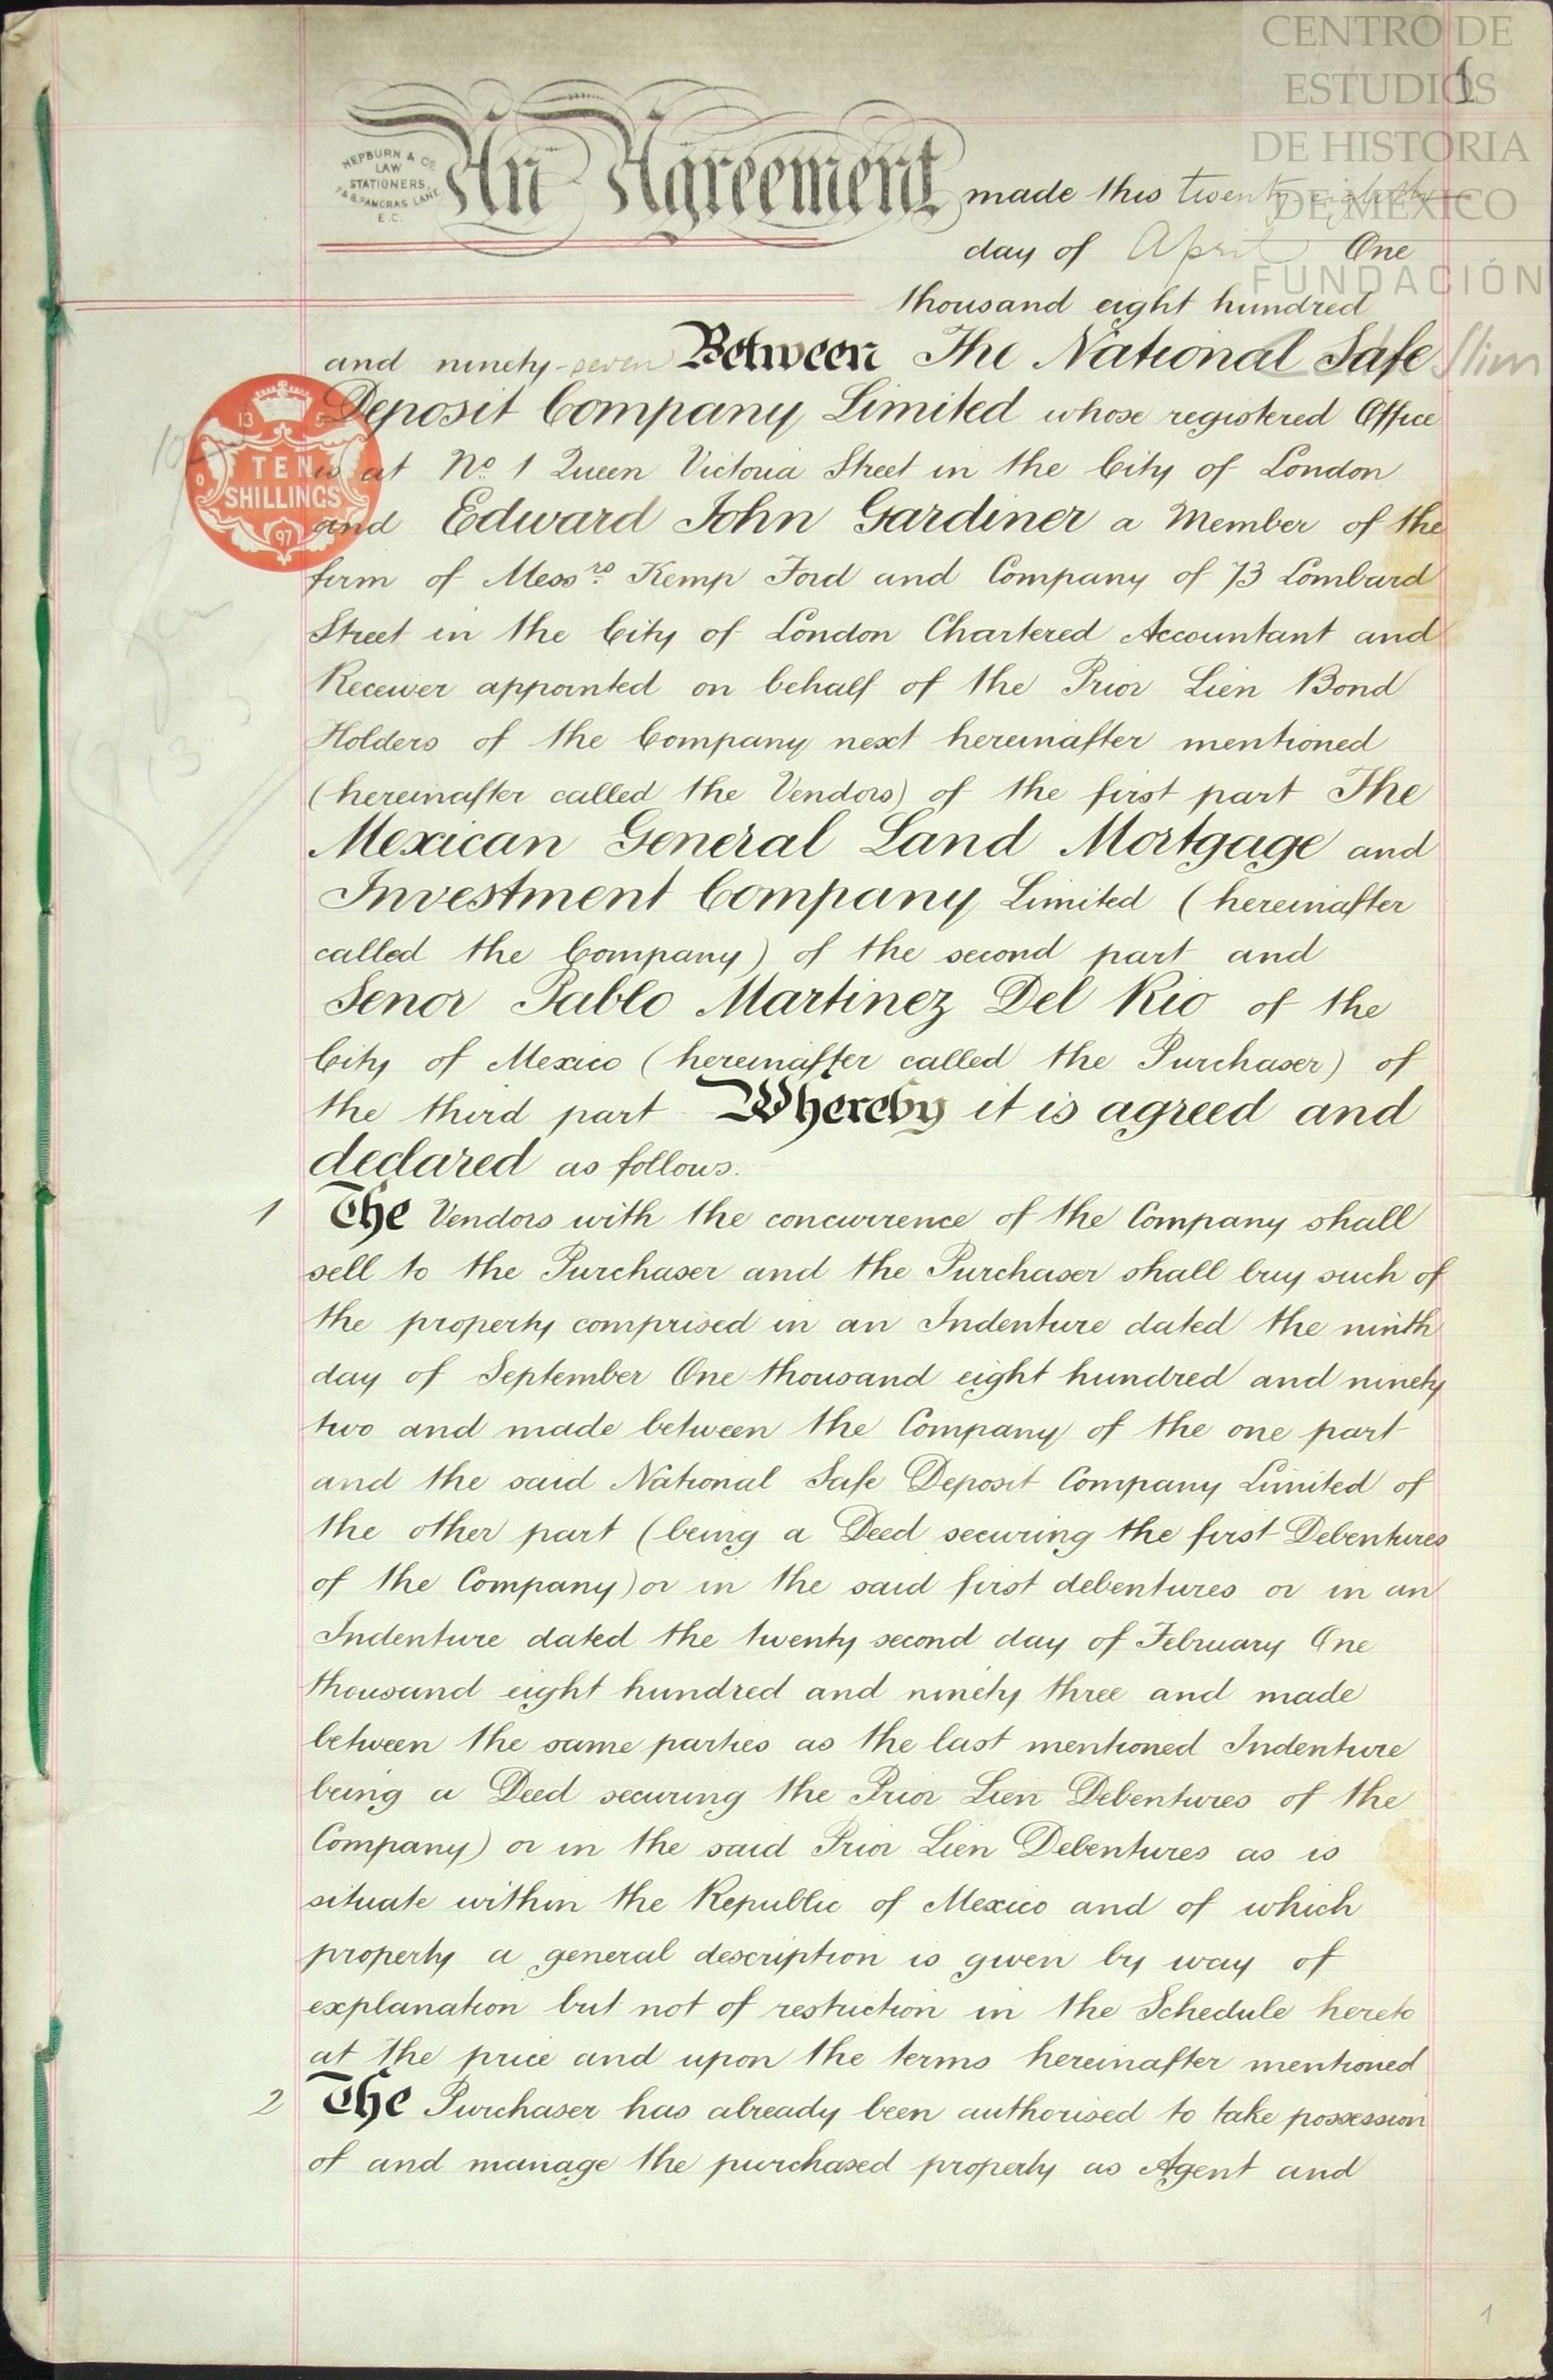 CENTRO DE
ESTUDIOS
DE HISTORIA
DE MÉXICO
FUNDACIÓN
Slim
1
HEPBURN & Co
LAW
STATIONERS
7 & 8, PANCRAS LANE
E.C.
An Agreement made this twenty eighth
day of April One
thousand eight hundred
and ninety-seven Between The National Safe
Deposit Company Limited whose registered Office
is at No. 1 Queen Victoria Street in the City of London
and Edward John Gardiner a Member of the
firm of Messrs. Kemp Ford and Company of 73 Lombard
Street in the City of London Chartered Accountant and
Receiver appointed on behalf of the Prior Lien Bond
Holders of the Company next hereinafter mentioned
(hereinafter called the Vendors) of the first part The
Mexican General Land Mortgage and
Investment Company Limited (hereinafter
called the Company) of the second part and
Senor Pablo Martinez Del Rio of the
City of Mexico (hereinafter called the Purchaser) of
the third part Whereby it is agreed and
declared as follows.
1 The Vendors with the concurrence of the Company shall
sell to the Purchaser and the Purchaser shall buy such of
the property comprised in an Indenture dated the ninth
day of September One thousand eight hundred and ninety
two and made between the Company of the one part
and the said National Safe Deposit Company Limited of
the other part (being a Deed securing the first Debentures
of the Company) or in the said first debentures or in an
Indenture dated the twenty second day of February One
thousand eight hundred and ninety three and made
between the same parties as the last mentioned Indenture
being a Deed securing the Prior Lien Debentures of the
Company) or in the said Prior Lien Debentures as is
situate within the Republic of Mexico and of which
property a general description is given by way of
explanation but not of restriction in the Schedule hereto
at the price and upon the terms hereinafter mentioned
2 The Purchaser has already been authorised to take possession
of and manage the purchased property as Agent and
TEN
SHILLINGS
97
1